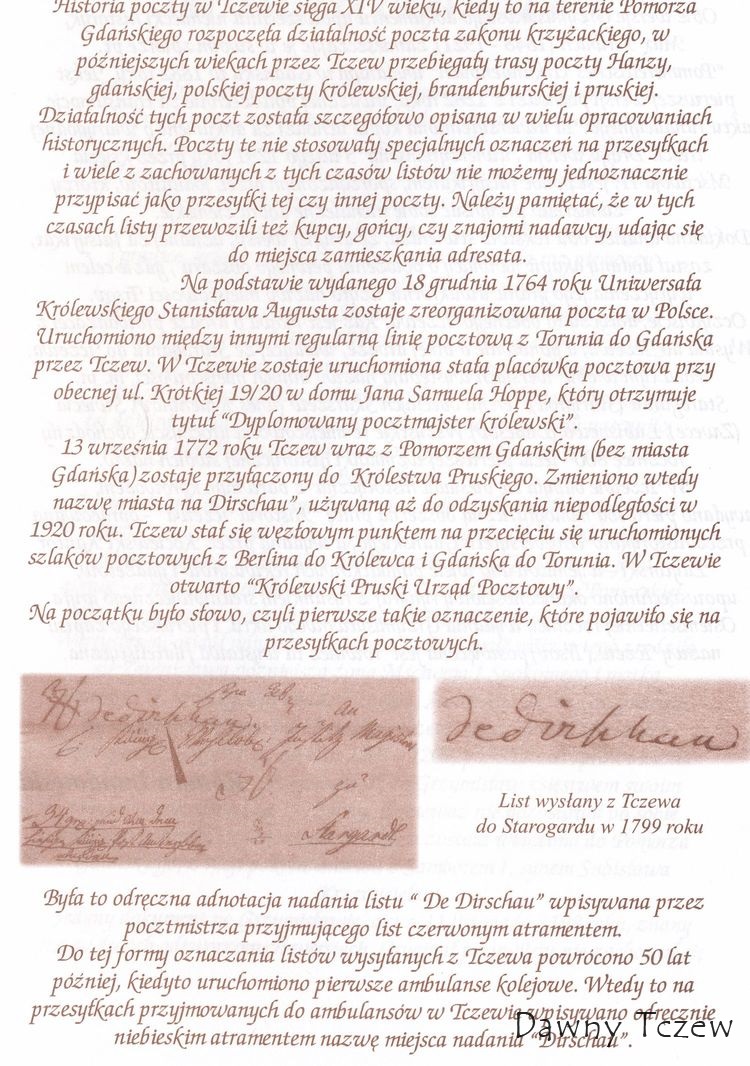 Historia poczty w Tczewie sięga XIV wieku, kiedy to na terenie Pomorza
Gdańskiego rozpoczęła działalność poczta zakonu krzyżackiego, w
późniejszych wiekach przez Tczew przebiegały trasy poczty Hanzy,
gdańskiej, polskiej poczty królewskiej, brandenburskiej i pruskiej.
Działalność tych poczt została szczegółowo opisana w wielu opracowaniach
historycznych. Poczty te nie stosowały specjalnych oznaczeń na przesyłkach
i wiele z zachowanych z tych czasów listów nie możemy jednoznacznie
przypisać jako przesyłki tej czy innej poczty. Należy pamiętać, że w tych
czasach listy przewozili też kupcy, gońcy, czy znajomi nadawcy, udając się
do miejsca zamieszkania adresata.
Na podstawie wydanego 18 grudnia 1764 roku Uniwersała
Królewskiego Stanisława Augusta zostaje zreorganizowana poczta w Polsce.
Uruchomiono między innymi regularną linię pocztową z Torunia do Gdańska
przez Tczew. W Tczewie zostaje uruchomiona stała placówka pocztowa przy
obecnej ul. Krótkiej 19/20 w domu Jana Samuela Hoppe, który otrzymuje
tytuł “Dyplomowany pocztmajster królewski”.
13 września 1772 roku Tczew wraz z Pomorzem Gdańskim (bez miasta
Gdańska) zostaje przyłączony do Królestwa Pruskiego. Zmieniono wtedy
nazwę miasta na Dirschau”, używaną aż do odzyskania niepodległości w
1920 roku. Tczew stał się węzłowym punktem na przecięciu się uruchomionych
szlaków pocztowych z Berlina do Królewca i Gdańska do Torunia. W Tczewie
otwarto “Królewski Pruski Urząd Pocztowy”.
Na początku było słowo, czyli pierwsze takie oznaczenie, które pojawiło się na
przesyłkach pocztowych.
de dirschau
An
Stargardt
de dirschau
List wysłany z Tczewa
do Starogardu w 1799 roku
Była to odręczna adnotacja nadania listu “ De Dirschau” wpisywana przez
pocztmistrza przyjmującego list czerwonym atramentem.
Do tej formy oznaczania listów wysyłanych z Tczewa powrócono 50 lat
później, kiedyto uruchomiono pierwsze ambulanse kolejowe. Wtedy to na
przesyłkach przyjmowanych do ambulansów w Tczewie wpisywano odręcznie
niebieskim atramentem nazwę miejsca nadania “Dirschau”.
Dawny Tczew